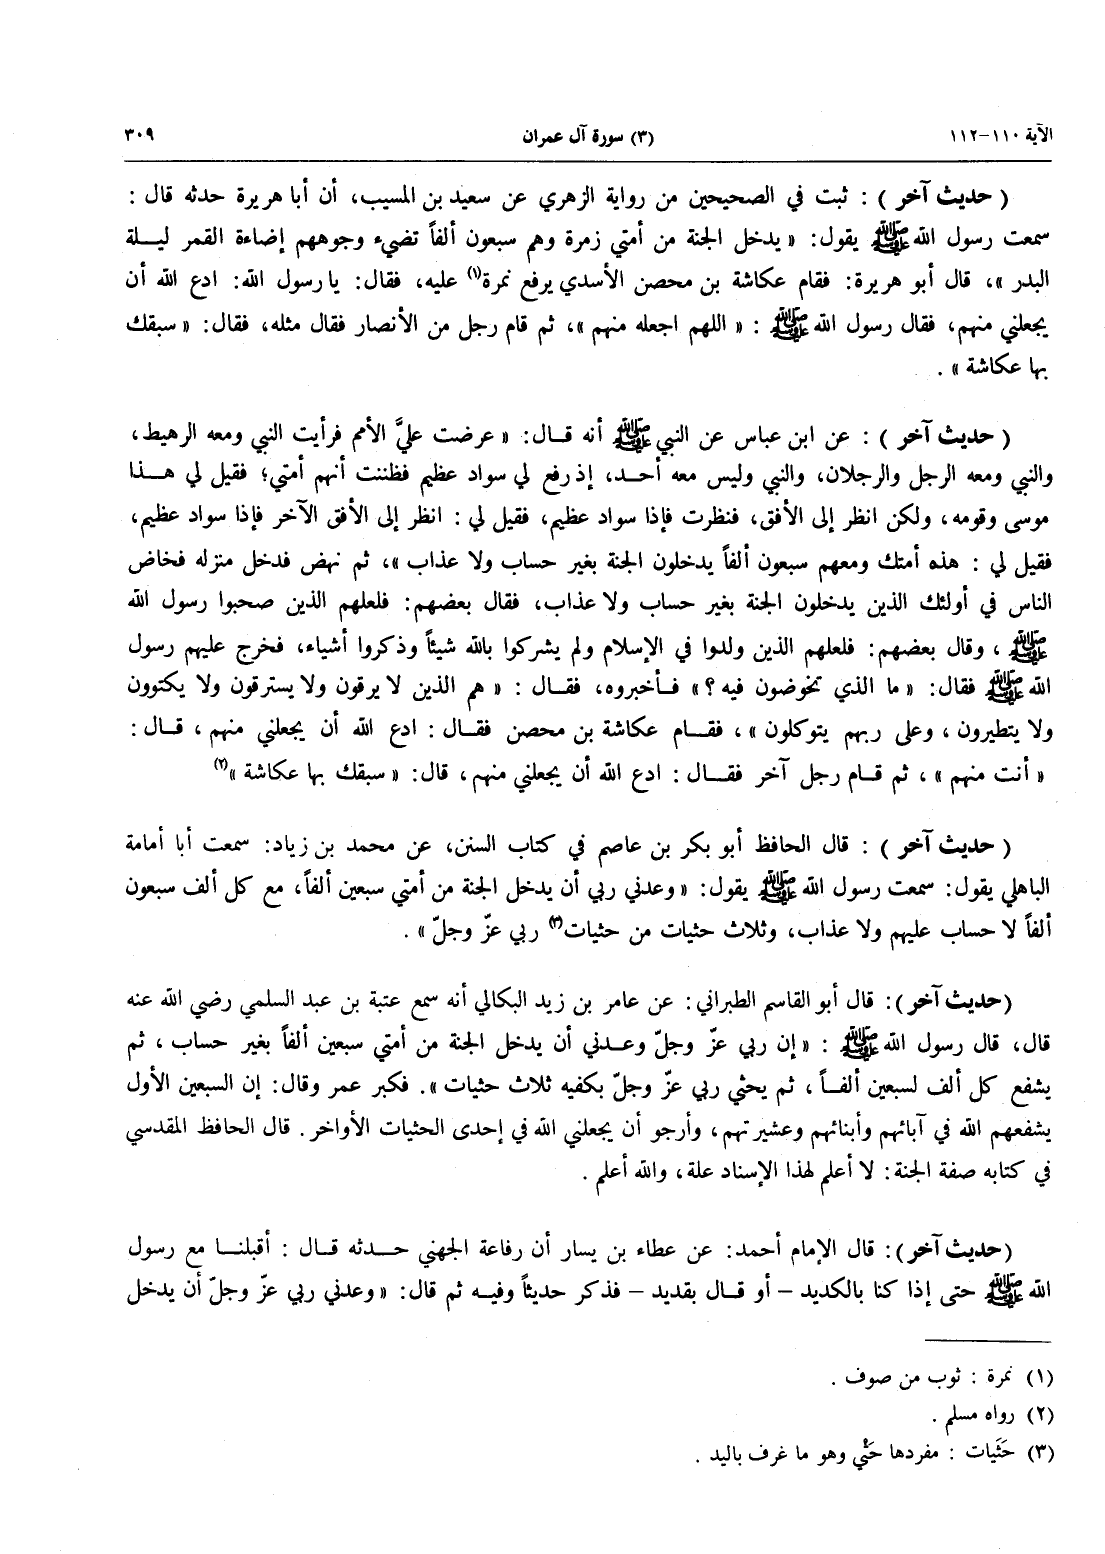 الآية ١١٠-١١٢
(٣) سورة آل عمران
٣٠٩
( حديث آخر ) : ثبت في الصحيحين من رواية الزهري عن سعيد بن المسيب، أن أبا هريرة حدثه قال :
سمعت رسول الله ﷺ يقول: « يدخل الجنة من أمتي زمرة وهم سبعون ألفاً تضيء وجوههم إضاءة القمر ليـــلة
البدر »، قال أبو هريرة: فقام عكاشة بن محصن الأسدي يرفع نمرة(١) عليه، فقال: يا رسول الله: ادع الله أن
يجعلني منهم، فقال رسول الله ﷺ : « اللهم اجعله منهم »، ثم قام رجل من الأنصار فقال مثله، فقال: « سبقك
بها عكاشة » .
( حديث آخر ) : عن ابن عباس عن النبي ﷺ أنه قـــال: « عرضت عليَّ الأمم فرأيت النبي ومعه الرهيط،
والنبي ومعه الرجل والرجلان، والنبي وليس معه أحـــد، إذ رفع لي سواد عظيم فظننت أنهم أمتي؛ فقيل لي هـــذا
موسى وقومه، ولكن انظر إلى الأفق، فنظرت فإذا سواد عظيم، فقيل لي : انظر إلى الأفق الآخر فإذا سواد عظيم،
فقيل لي : هذه أمتك ومعهم سبعون ألفاً يدخلون الجنة بغير حساب ولا عذاب »، ثم نهض فدخل منزله فخاض
الناس في أولئك الذين يدخلون الجنة بغير حساب ولا عذاب، فقال بعضهم: فلعلهم الذين صحبوا رسول الله
ﷺ ، وقال بعضهم: فلعلهم الذين ولدوا في الإسلام ولم يشركوا بالله شيئاً وذكروا أشياء، فخرج عليهم رسول
الله ﷺ فقال: « ما الذي تخوضون فيه؟ » فـأخبروه، فقـــال : « هم الذين لا يرقون ولا يسترقون ولا يكتوون
ولا يتطيرون ، وعلى ربهم يتوكلون » ، فقـــام عكاشة بن محصن فقـــال : ادع الله أن يجعلني منهم ، قـــال :
« أنت منهم » ، ثم قـــام رجل آخر فقـــال : ادع الله أن يجعلني منهم، قال: « سبقك بها عكاشة »(٢)
( حديث آخر ) : قال الحافظ أبو بكر بن عاصم في كتاب السنن، عن محمد بن زياد: سمعت أبا أمامة
الباهلي يقول: سمعت رسول الله ﷺ يقول: « وعدني ربي أن يدخل الجنة من أمتي سبعين ألفاً، مع كل ألف سبعون
ألفاً لا حساب عليهم ولا عذاب، وثلاث حثيات من حثيات(٣) ربي عزّ وجلّ » .
(حديث آخر): قال أبو القاسم الطبراني: عن عامر بن زيد البكالي أنه سمع عتبة بن عبد السلمي رضي الله عنه
قال، قال رسول الله ﷺ : « إن ربي عزّ وجلّ وعـدني أن يدخل الجنة من أمتي سبعين ألفاً بغير حساب ، ثم
يشفع كل ألف لسبعين ألفـــاً ، ثم يحثي ربي عزّ وجلّ بكفيه ثلاث حثيات ». فكبر عمر وقال: إن السبعين الأول
يشفعهم الله في آبائهم وأبنائهم وعشيرتهم، وأرجو أن يجعلني الله في إحدى الحثيات الأواخر. قال الحافظ المقدسي
في كتابه صفة الجنة: لا أعلم لهذا الإسناد علة، والله أعلم .
(حديث آخر): قال الإمام أحمد: عن عطاء بن يسار أن رفاعة الجهني حـــدثه قـــال : أقبلنـــا مع رسول
الله ﷺ حتى إذا كنا بالكديد – أو قـــال بقديد – فذكر حديثاً وفيـــه ثم قال: « وعدني ربي عزّ وجلّ أن يدخل
(١) نمرة : ثوب من صوف .
(٢) رواه مسلم .
(٣) حَثَيات : مفردها حَثْي وهو ما غرف باليد .